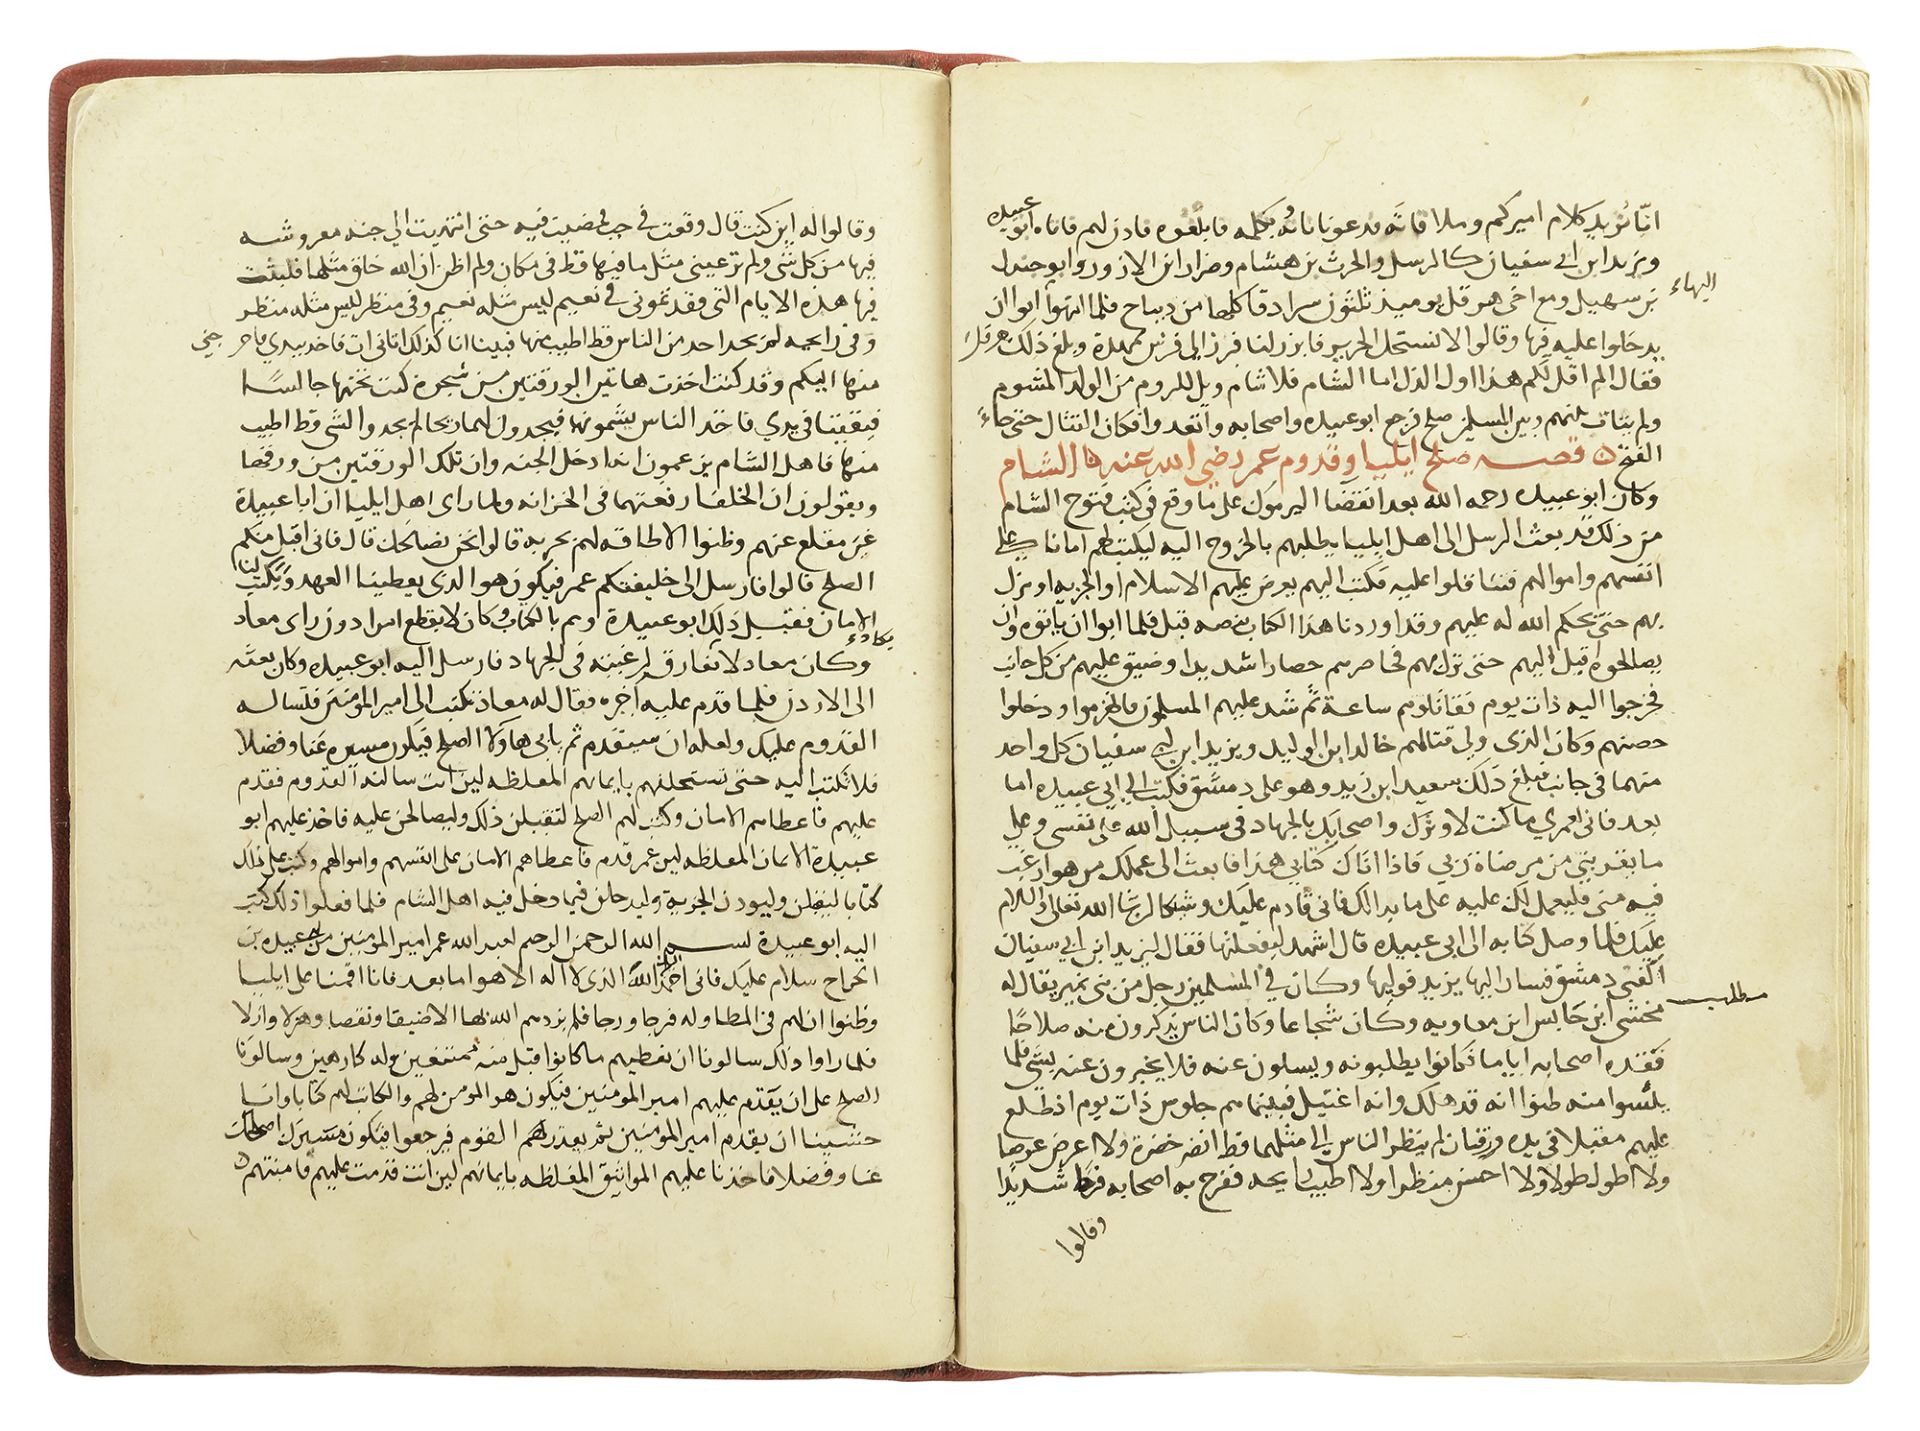 انا نريد كلام اميركم وملاقاته فدعونا ناته ونكلمه فابلغوه فاذن لهم فاتاه ابو عبيده
ويزيد ابن ابي سفيان كالرسل والحرث بن هشام وضرار ابن الازور وابو جندل
بن سهيل ومع اخي هرقل يوميذ ثلثون سرادقا كلها من ديباج فلما انتهوا اليها ابوا ان
يدخلوا عليه فيها وقالوا لا نستحل الحرير فابرز لنا فبرز الي فرش ممهدة وبلغ ذلك هرقل
فقال الم اقل لكم هذا اول الذل اما الشام فلا شام ويل للروم من الولد المشوم
ولم يتات بينهم وبين المسلمين صلح فرجع ابو عبيده واصحابه واتعدوا فكان القتال حتى جاء
الفتح ۞ قصه صلح ايليا وقدوم عمر رضي الله عنه الشام
وكان ابو عبيده رحمه الله بعد انقضا اليرموك على ما وقع في كتب فتوح الشام
من ذلك قد بعث الرسل الى اهل ايليا يطلبهم بالخروج اليه ليكتب لهم امانا على
انفسهم واموالهم فتثاقلوا عليه فكتب اليهم يعرض عليهم الاسلام او الجزيه او نزل
بهم حتى يحكم الله له عليهم وقد اوردنا هذا الكتاب بنصه قبل فلما ابوا ان ياتوه وان
يصالحوه اقبل اليهم حتى نزل بهم فحاصرهم حصارا شديدا وضيق عليهم من كل جانب
فخرجوا اليه ذات يوم فقاتلوهم ساعة ثم شد عليهم المسلمون فانهزموا ودخلوا
حصنهم وكان الذي ولي قتالهم خالد ابن الوليد ويزيد ابن ابي سفيان كل واحد
منهما في جانب فبلغ ذلك سعيد ابن زيد وهو على دمشق فكتب الي ابي عبيده اما
بعد فاني لعمري ما كنت لاوثرك واصحابك بالجهاد في سبيل الله على نفسي وعلى
ما يقربني من مرضاة ربي فاذا اتاك كتابي هذا فابعث الى عملك من هو ارغب
فيه مني فليعمل لك عليه على ما بدا لك فاني قادم عليك وشيكا ان شا الله تعالى والسلام
عليك فلما وصل كتابه الى ابي عبيده قال اشهد ليفعلنها فقال ليزيد ابن ابي سفيان
اكفني دمشق فسار اليها يزيد فوليها وكان في المسلمين رجل من بني نمير يقال له
مطلب
مخشي ابن حابس ابن معاويه وكان شجاعا وكان الناس يذكرون منه صلاحا
ففقده اصحابه اياما فكانوا يطلبونه ويسلون عنه فلا يخبرون عنه بشي فلما
يئسوا منه ظنوا انه قد هلك وانه اغتيل فبينما هم جلوس ذات يوم اذ طلع
عليهم مقبلا في يده ورقتان لم ينظر الناس الي مثلهما قط انضر خضرة ولا اعرض عرضا
ولا اطول طولا ولا احسن منظرا ولا اطيب ريحه ففرح به اصحابه فرحا شديدا
وقالوا
وقالوا له اين كنت قال وقعت في جب فمضيت فيه حتى انتهيت الي جنه معروشه
فيها من كل شي ولم تر عيني مثل ما فيها قط في مكان ولم اظن ان الله خلق مثلها فلبثت
فيها هذه الايام التي فقدتموني في نعيم ليس مثله نعيم وفي منظر ليس مثله منظر
وفي رايحه لم يجد احد من الناس قط اطيب منها فبينا انا كذلك اتاني ات فاخذ بيدي فاخرجني
منها اليكم وقد كنت اخذت هاتين الورقتين من شجرة كنت تحتها جالسا
فبقيتا في يدي فاخذ الناس يشمونها فيجدون لهما ريحا لم يجدوا لشي قط اطيب
منها فاهل الشام يزعمون انه ادخل الجنه وان تلك الورقتين من ورقها
ويقولون ان الخلفا رفعتهما في الخزانه ولما راى اهل ايليا ان ابا عبيدة
غير مقلع عنهم وظنوا الا طاقه لهم بحربه قالوا نحن نصالحك قال فاني اقبل منكم
الصلح قالوا فارسل الى خليفتكم عمر فيكون هو الذي يعطينا العهد ويكتب لنا
الامان فقبل ذلك ابو عبيدة وهم بالكتاب وكان لا يقطع امرا دون راى معاذ
وكان معاذ لا يكاد يفارقه لرغبته في الجهاد فارسل اليه ابو عبيده وكان بعثه
الى الاردن فلما قدم عليه اخبره فقال له معاذ تكتب الى امير المومنين فتساله
القدوم عليك ولعله ان سيقدم ثم يابى هاولا الصلح فيكون مسيره عنا وفضلا
فلا تكتب اليه حتى تستحلفهم بايمانهم المغلظه لين انت سالته القدوم فقدم
عليهم فاعطاهم الامان وكتب لهم الصلح لتقبلن ذلك وليصالحن عليه فاخذ عليهم ابو
عبيدة الايمان المغلظه لين عمر قدم فاعطاهم الامان على انفسهم واموالهم وكتب على ذلك
كتابا ليقبلن وليودن الجزية وليدخلن فيما دخل فيه اهل الشام فلما فعلوا ذلك كتب
اليه ابو عبيدة بسم الله الرحمن الرحيم لعبد الله عمر امير المومنين من ابي عبيده بن
الجراح سلام عليك فاني احمد اليك الله الذي لا اله الا هو اما بعد فانا اقمنا على ايليا
وظنوا ان لهم في المطاوله فرجا ورجا فلم يزدهم الله بها الا ضيقا ونقصا وهزلا وازلا
فلما راوا ذلك سالونا ان نعطيهم ما كانوا قبل منه ممتنعين وله كارهين وسالونا
الصلح على ان يقدم عليهم امير المومنين فيكون هو المومن لهم والكاتب لهم كتابا وانا
خشينا ان يقدم امير المومنين ثم يغدر القوم فيرجعوا فيكون مسيرك اصلحك
عنا وفضلا فاخذنا عليهم المواثيق المغلظه بايمانهم لين انت قدمت عليهم فامنتهم